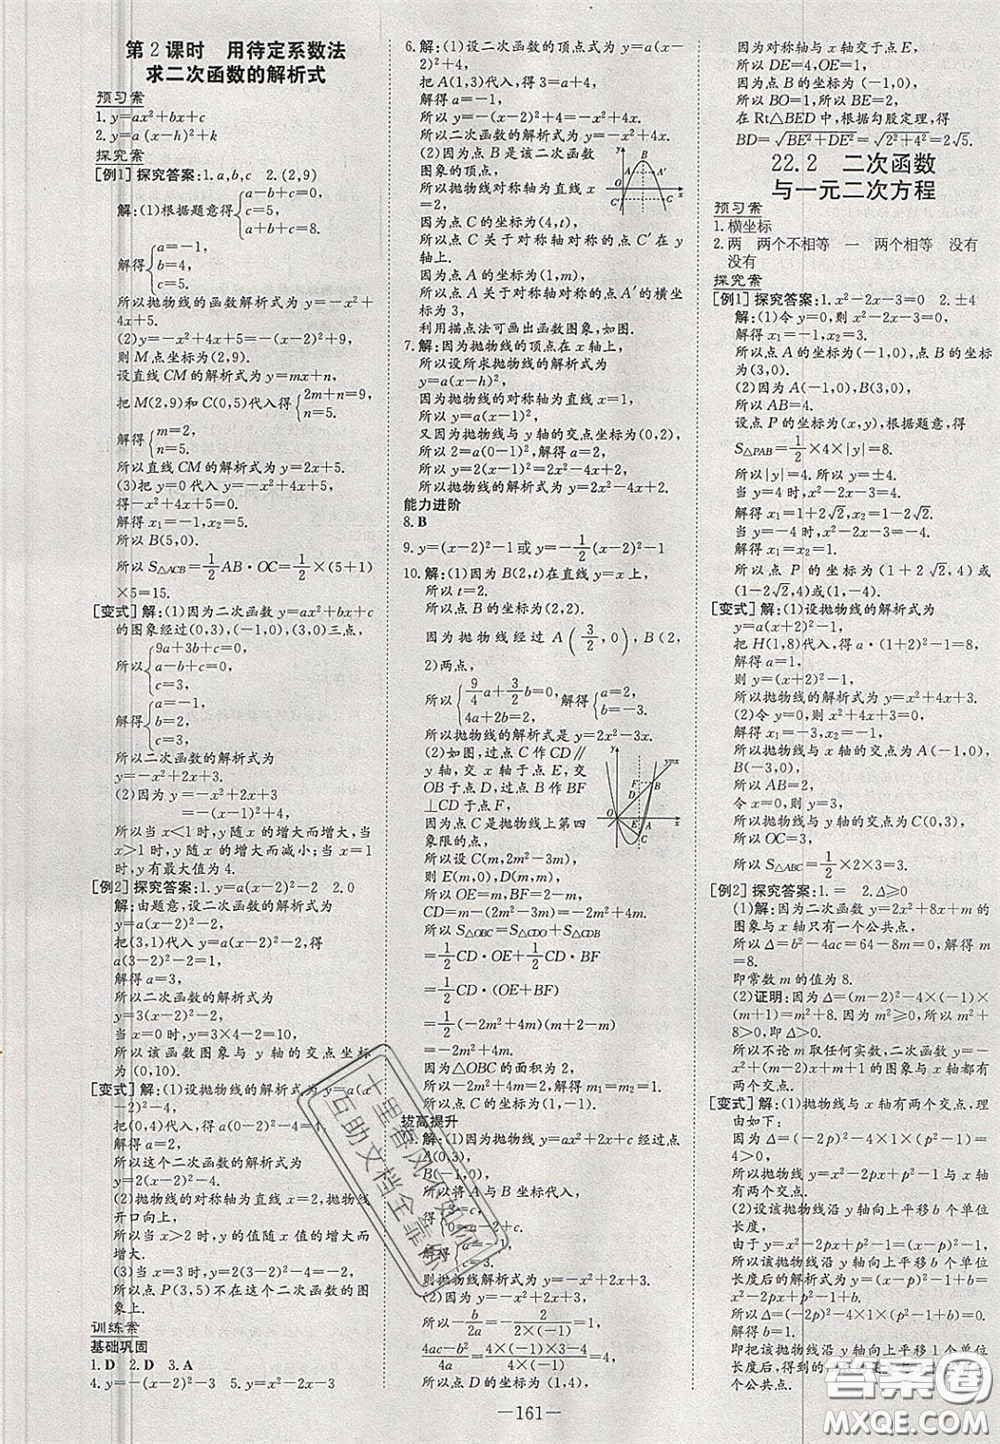 第2课时 用待定系数法
求二次函数的解析式
预习案
1. y=ax²+bx+c
2. y=a(x-h)²+k
探究案
[例1] 探究答案:1. a,b,c 2. (2,9)
解:(1)根据题意得{a-b+c=0,
c=5,
a+b+c=8.
解得{a=-1,
b=4,
c=5.
所以抛物线的函数解析式为y=-x²+
4x+5.
(2)y=-x²+4x+5=-(x-2)²+9,
则M点坐标为(2,9).
设直线CM的解析式为y=mx+n,
把M(2,9)和C(0,5)代入得{2m+n=9,
n=5.
解得{m=2,
n=5.
所以直线CM的解析式为y=2x+5.
(3)把y=0代入y=-x²+4x+5,
得-x²+4x+5=0.
解得x₁=-1,x₂=5.
所以B(5,0).
所以S△ACB=1/2 AB·OC=1/2×(5+1)
×5=15.
[变式]解:(1)因为二次函数y=ax²+bx+c
的图象经过(0,3),(-1,0),(3,0)三点,
所以{9a+3b+c=0,
a-b+c=0,
c=3,
解得{a=-1,
b=2,
c=3,
所以二次函数的解析式为
y=-x²+2x+3.
(2)因为y=-x²+2x+3
=-(x-1)²+4,
所以当x<1时,y随x的增大而增大,当
x>1时,y随x的增大而减小;当x=1
时,y有最大值为4.
[例2] 探究答案:1. y=a(x-2)²-2 2. 0
解:由题意,设二次函数的解析式为
y=a(x-2)²-2,
把(3,1)代入y=a(x-2)²-2,得
a(3-2)²-2=1,
解得a=3,
所以二次函数的解析式为
y=3(x-2)²-2,
当x=0时,y=3×4-2=10,
所以该函数图象与y轴的交点坐标
为(0,10).
[变式]解:(1)设抛物线的解析式为y=a(x
-2)²-2,
把(0,4)代入得a·(-2)²-2=4,
解得a=3/2,
所以这个二次函数的解析式为
y=3/2(x-2)²-2.
(2)抛物线的对称轴为直线x=2,抛物线
开口向上,
所以当x>2时,y的值随x的增大而
增大.
(3)当x=3时,y=3/2(3-2)²-2=-1/2,
所以点P(3,5)不在这个二次函数的图
象上.
训练案
基础巩固
1. D 2. D 3. A
4. y=-(x-3)²+2 5. y=x²-x-3
6. 解:(1)设二次函数的顶点式为y=a(x-
2)²+4,
把A(1,3)代入,得3=a(1-2)²+4,
解得a=-1,
所以y=-(x-2)²+4=-x²+4x,
所以二次函数的解析式为y=-x²+4x.
(2)因为点B是该二次函数
图象的顶点,
所以抛物线对称轴为直线x
=2,
因为点C的坐标为(4,t),
所以点C关于对称轴对称的点C′在y
轴上.
因为点A的坐标为(1,3),
所以点A关于对称轴对称的点A′的横坐
标为3,
利用描点法可画出函数图象,如图.
7. 解:因为抛物线的顶点在x轴上,
所以设所求抛物线的解析式为
y=a(x-h)²,
因为抛物线的对称轴为直线x=1,
所以y=a(x-1)²,
又因为抛物线与y轴的交点坐标为(0,2),
所以2=a(0-1)²,解得a=2.
所以抛物线的解析式为y=2x²-4x+2.
能力进阶
8. B
9. y=(x-2)²-1或y=-1/3(x-2)²-1
10. 解:(1)因为B(2,t)在直线y=x上,
所以t=2.
所以点B的坐标为(2,2).
因为抛物线经过A(3/2,0),B(2,
2)两点,
所以{9/4 a+3/2 b=0,
4a+2b=2,
解得{a=2,
b=-3.
所以抛物线的解析式是y=2x²-3x.
(2)如图,过点C作CD∥
y轴,交x轴于点E,交
OB于点D,过点B作BF
⊥CD于点F,
因为点C是抛物线上第四
象限的点,
所以设C(m,2m²-3m),
则E(m,0),D(m,m).
所以OE=m,BF=2-m,
CD=m-(2m²-3m)=-2m²+4m,
所以S△OBC=S△CDO+S△CDB
=1/2CD·OE+1/2CD·BF
=1/2CD·(OE+BF)
=1/2(-2m²+4m)(m+2-m)
=-2m²+4m.
因为△OBC的面积为2,
所以-2m²+4m=2,解得m₁=m₂=1.
所以点C的坐标为(1,-1).
拔高提升
解:(1)因为抛物线y=ax²+2x+c经过点
A(0,3),
B(-1,0),
所以将A与B坐标代入,
得{c=3,
a-2+c=0.
解得{a=-1,
c=3.
则抛物线解析式为y=-x²+2x+3.
(2)因为-b/2a=-2/(2×(-1))=1,
(4ac-b²)/4a=(4×(-1)×3-4)/(4×(-1))=4,
所以点D的坐标为(1,4),
因为对称轴与x轴交于点E,
所以DE=4,OE=1,
因为点B的坐标为(-1,0),
所以BO=1,所以BE=2,
在Rt△BED中,根据勾股定理,得
BD=√(BE²+DE²)=√(2²+4²)=2√5.
22.2 二次函数
与一元二次方程
预习案
1. 横坐标
2. 两 两个不相等 一 两个相等 没有
没有
探究案
[例1] 探究答案:1. x²-2x-3=0 2. ±4
解:(1)令y=0,则x²-2x-3=0,
解得x₁=-1,x₂=3.
所以点A的坐标为(-1,0),点B的坐标
为(3,0).
(2)因为A(-1,0),B(3,0),
所以AB=4.
设点P的坐标为(x,y),根据题意,得
S△PAB=1/2×4×|y|=8.
所以|y|=4,所以y=±4.
当y=4时,x²-2x-3=4,
解得x₁=1+2√2,x₂=1-2√2.
当y=-4时,x²-2x-3=-4,
解得x₁=x₂=1.
所以点P的坐标为(1+2√2,4)或
(1-2√2,4)或(1,-4).
[变式]解:(1)设抛物线的解析式为
y=a(x+2)²-1,
把H(1,8)代入,得a·(1+2)²-1=8,
解得a=1,
则y=(x+2)²-1,
所以抛物线的解析式为y=x²+4x+3.
(2)令y=0,则x²+4x+3=0,
解得x₁=-1,x₂=-3,
所以抛物线与x轴的交点坐标为A(-3,
0),B(-1,0),
所以AB=2.
令x=0,则y=3,
所以抛物线与y轴的交点为C(0,3),
所以OC=3,
所以S△ABC=1/2×2×3=3.
[例2] 探究答案:1. = 2. Δ≥0
(1)解:因为二次函数y=2x²+8x+m的
图象与x轴只有一个公共点.
所以Δ=b²-4ac=64-8m=0,解得m=
8.
即常数m的值为8.
(2)证明:因为Δ=(m-2)²-4×(-1)×
(m+1)=m²+8,因为m²≥0,所以m²+
8>0,即Δ>0.
所以不论m取任何实数,二次函数y=
[变式]解:(1)抛物线与x轴有两个交点,理
由如下:
因为Δ=(-2p)²-4×1×(p²-1)=
4>0,
所以抛物线y=x²-2px+p²-1与x轴
有两个交点.
(2)设该抛物线沿y轴向上平移a个单位
长度,
由于y=x²-2px+p²-1=(x-p)²-1,
所以该抛物线沿y轴向上平移a个单位
长度后的解析式为y=(x-p)²-1+a=
x²-2px+p²-1+a,
所以Δ=(-2p)²-4×1×(p²-1+a)=0,
解得a=1.
即把该抛物线沿y轴向上平移1个单位
-161-
答案圈
MXQE.COM